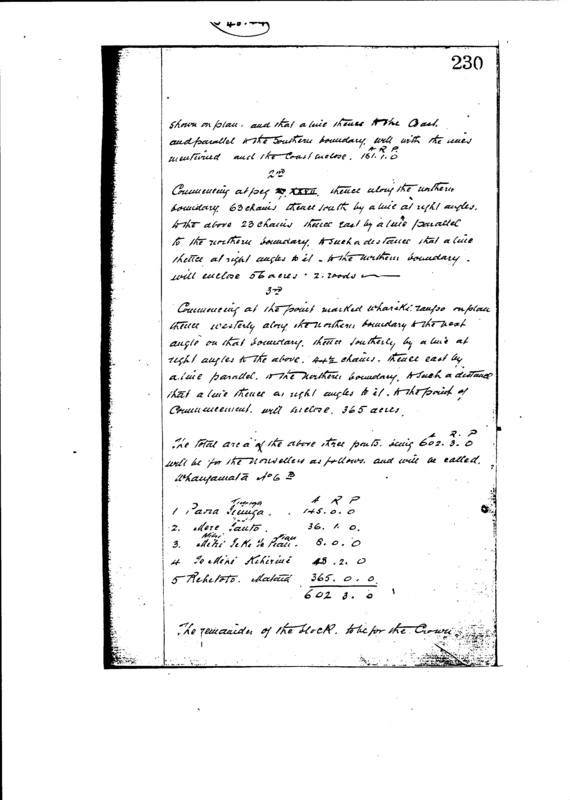 230
shown on plan. and that a line thence to the Coast.
and parallel to the Southern boundary, will with the lines
A R P.
mentioned and the Coast enclose. 181.1.0
2nd
Commencing at peg XXVII, thence along the northern
boundary 63 chains thence south by a line at right angles.
to the above 23 chains thence east by a line parallel
to the northern boundary, to such a distance that a line
thence at right angles to it - to the northern boundary.
will enclose 56 acres. 2. roods
3rd
Commencing at the point marked Wharikirangoo on plan
thence westerly along the northern boundary to the next
angle on that boundary, thence southerly by a line at
right angles to the above. 44½ chains. thence east by
a line parallel. to the northern boundary. to such a distance
that a line thence at right angles to it. to the point of
Commencement. will enclose. 365 acres.
A. R. P
The total area of the above three parts. being 602. 3. 0
will be for the Nonsellers as follows. and will be called.
Whangamata No 6 B
A R P
1 Parra . 145.0.0
2. Mere Tauto. 36. 1. 0
3. 8. 0. 0
4 Te Mini Kihirini 48. 2. 0
5 Rehetoto. 365. 0. 0.
602 3. 0
The remainder of the block. to be for the Crown.